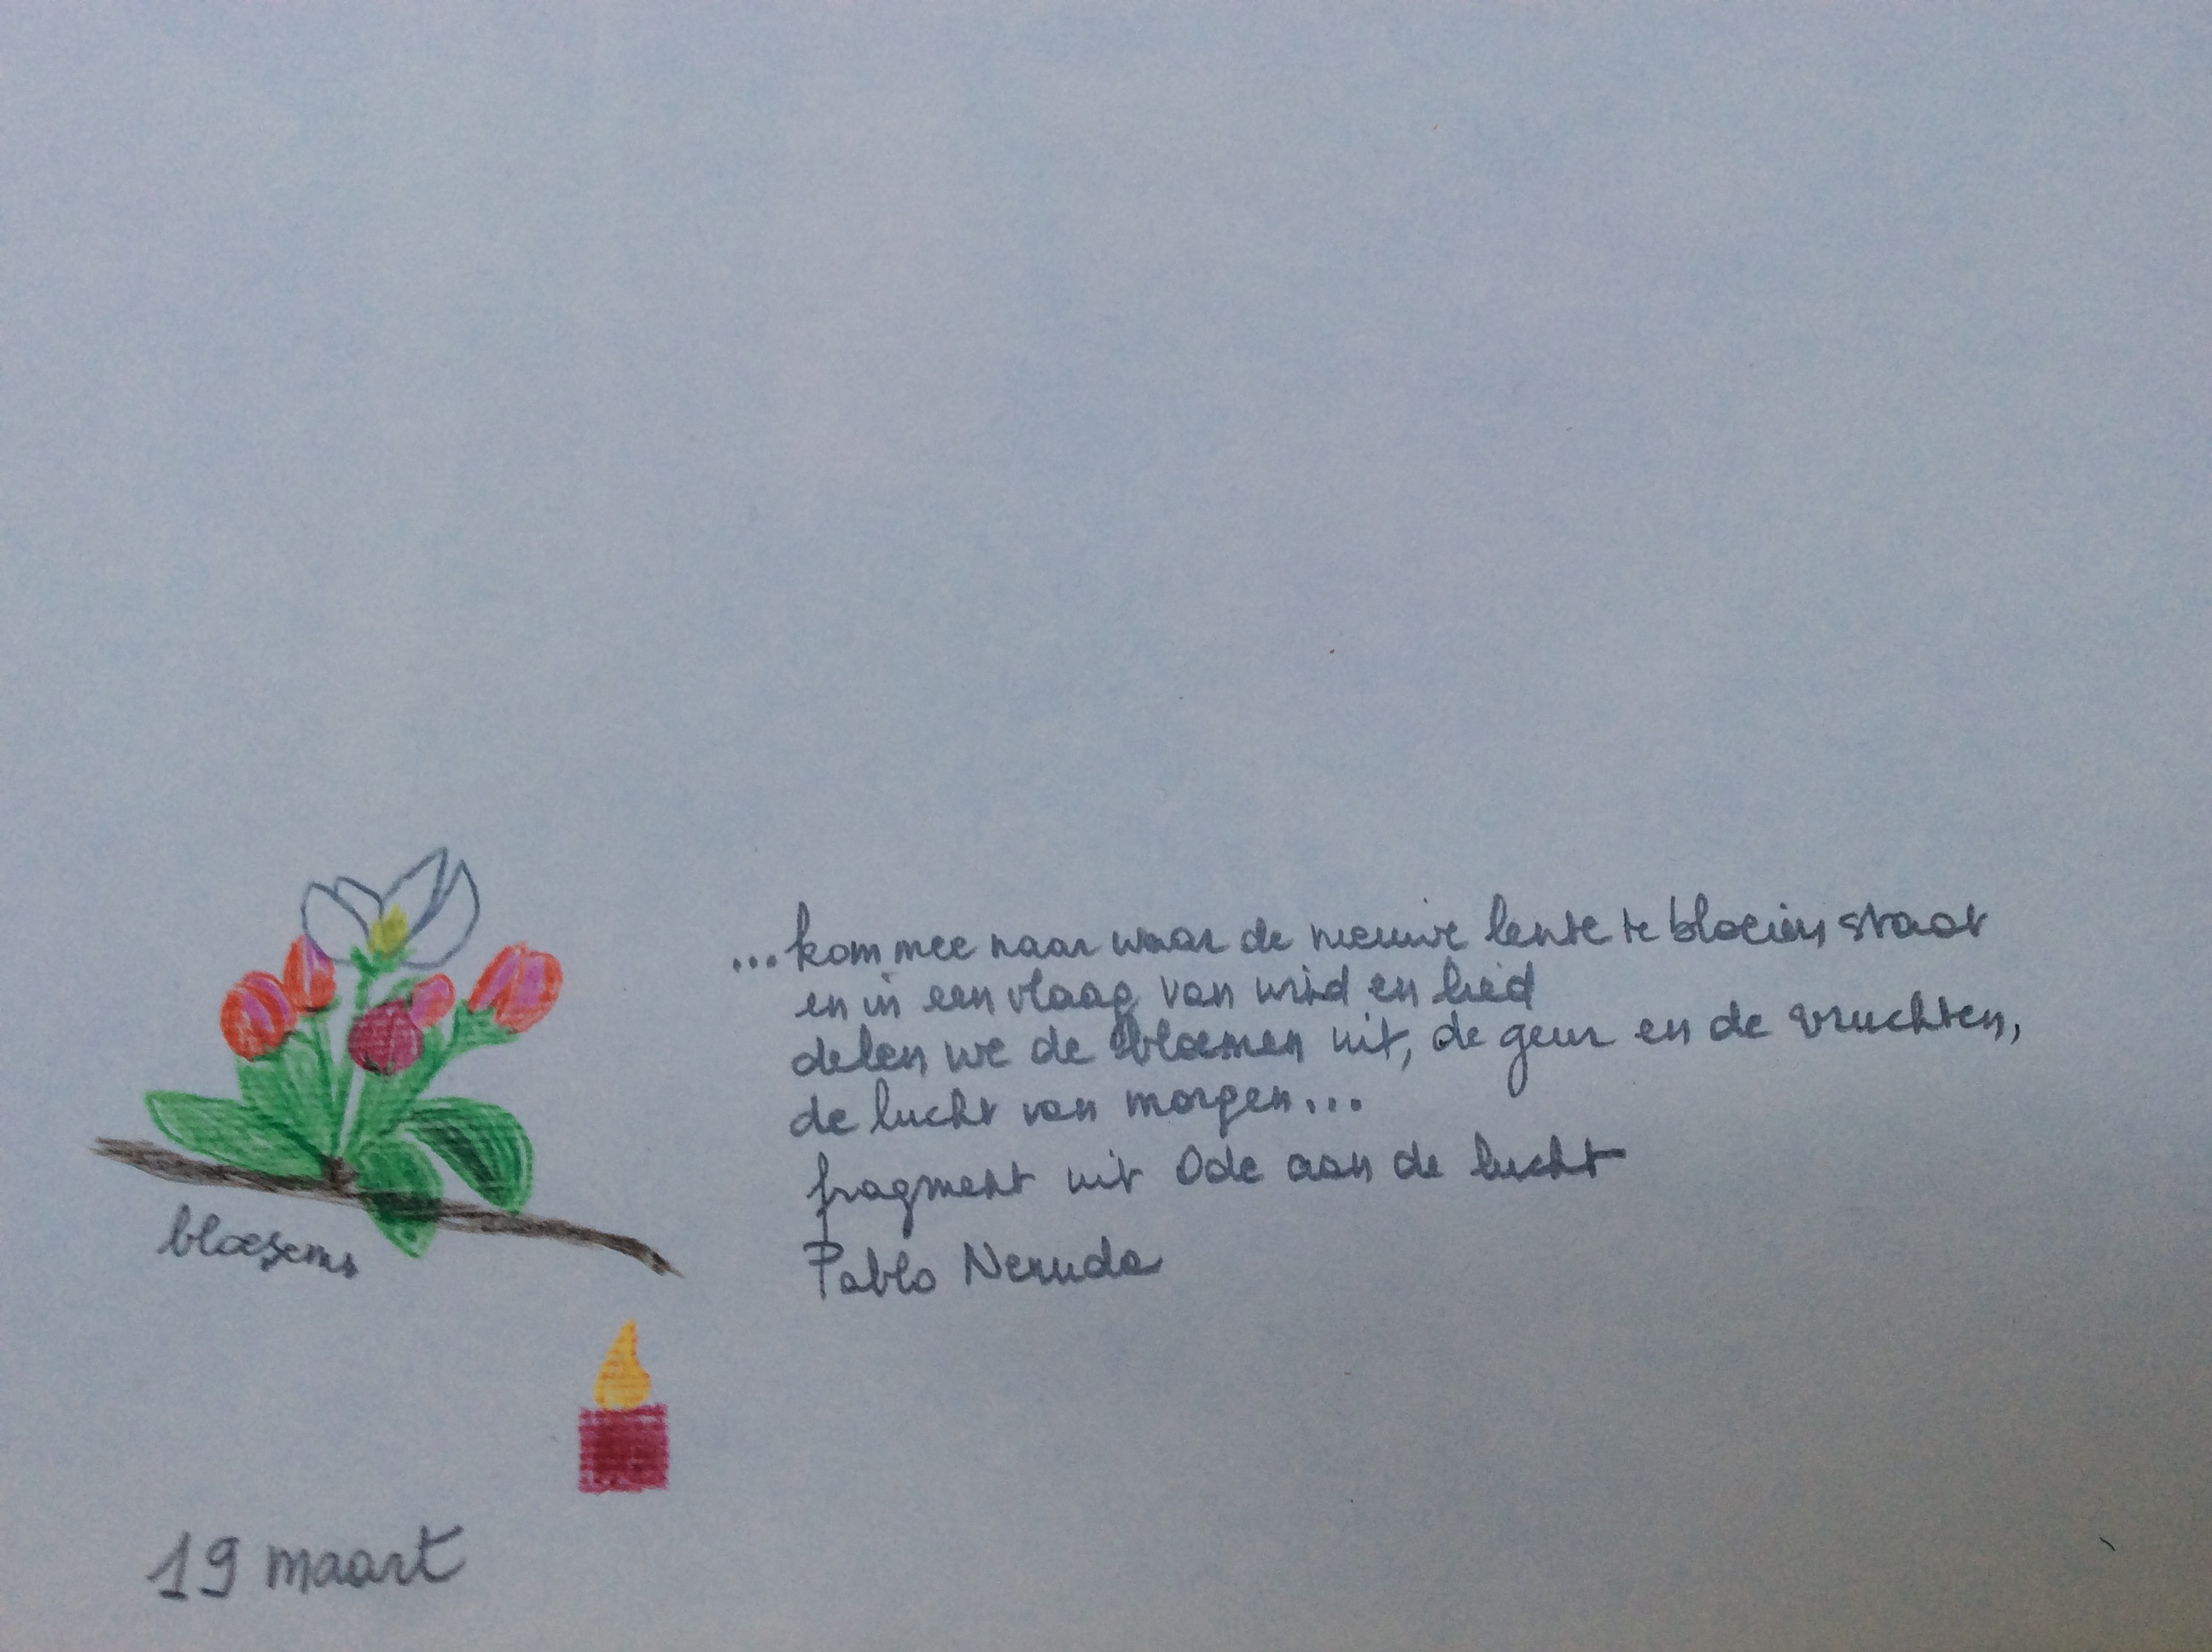 ...kom mee naar waar de nieuwe lente te bloeien staat
en in een vlaag van wind en lied
delen we de bloemen uit, de geur en de vruchten,
de lucht van morgen...
fragment uit Ode aan de lucht
Pablo Neruda
bloesems
19 maart